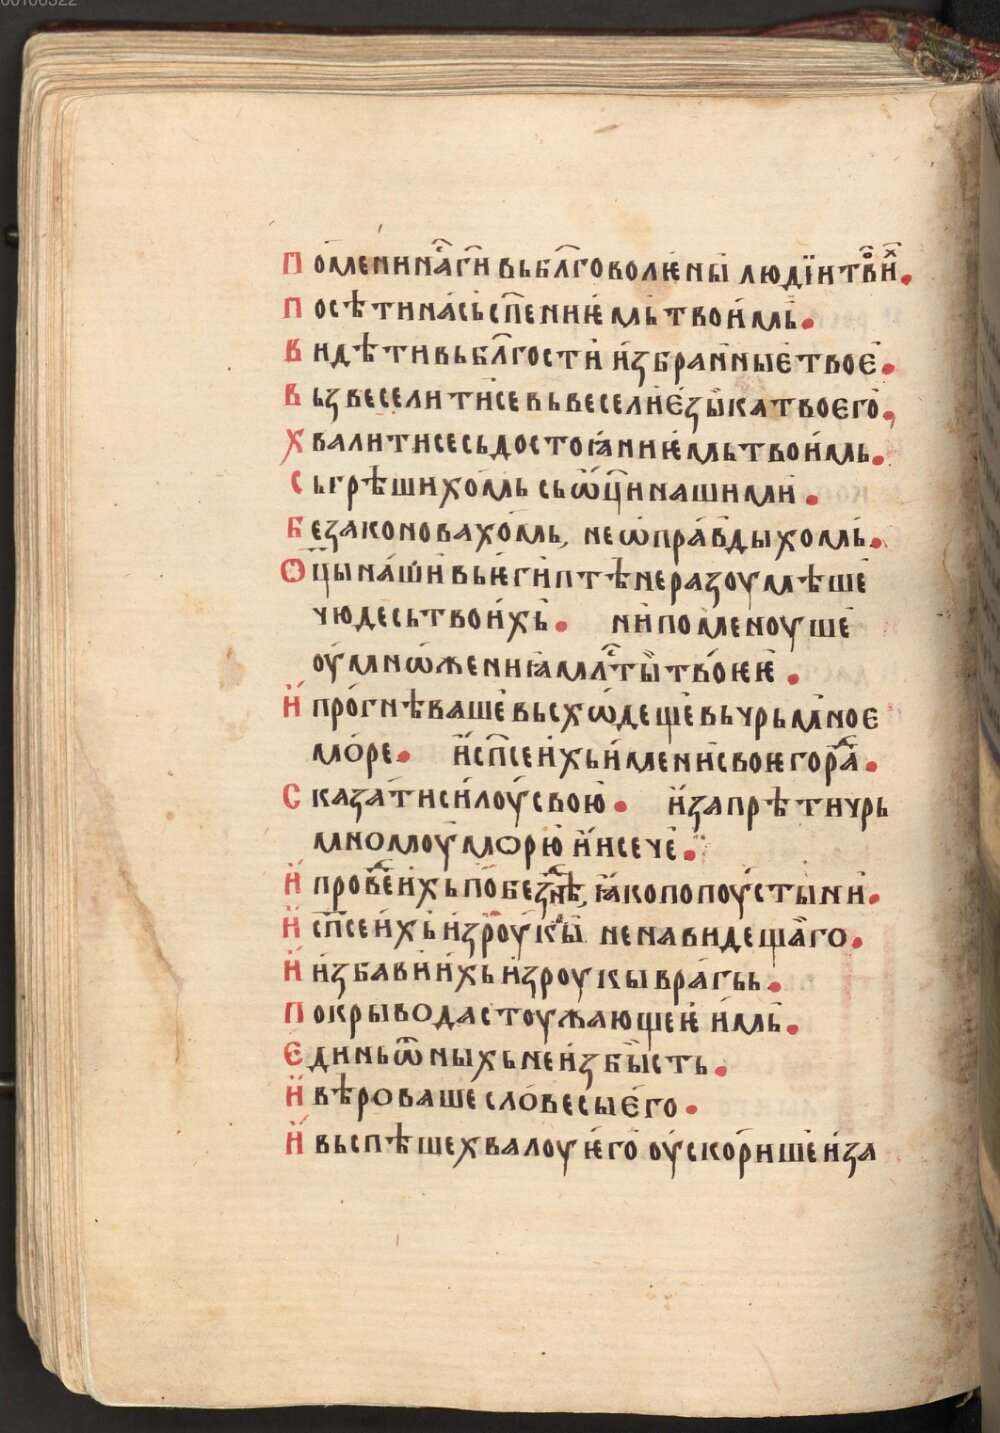 00106322
Помени на́с г҃и вь бл҃говолѥны людїи твои́х.
Посѣти на́сь сп҃сениѥмь твои́мь.
Видѣти вь бл҃гости и҆збранныѥ твоѥ.
Вьзвеселитисе вь весели ѥ҆зы́ка твоѥго.
Хвалитисе сь достоꙗ́ниѥмь твои́мь.
Сьгрѣшихомь сь ѿц҃и нашими.
Безаконовахо́мь, неѡпра́вдыхомь.
Ѻц҃ы на́ши вь ѥгиптѣ не разоумѣше
чюдесь твои́хь. ни поменоуше
оу҆мнѡжениꙗ мл҃сты твоѥѥ.
И҆ про́гнѣваше вьсхѡ́деще вь чрьмное
мо́ре. И҆ сп҃се и́хь и҆мени своѥго ра́д.
Сказати си́лоу свою. и҆ запрѣти чрь
мномоу морю и҆ и҆сече.
И҆ прове́де и́хь по бе́знѣ, ꙗ҆ко по поу́стыни.
И҆ сп҃се и́хь и҆з роукы ненавидещаго.
И҆ и҆збави и́хь и҆з роукы вра́гьь.
Покры вода стоужающеѥ и́мь.
Ѥ҆динь ѿ ныхь не и҆збысть.
И҆ вѣроваше словесы ѥ҆го.
И҆ вьспѣше хвалоу ѥ҆го оу҆скорише и҆ за